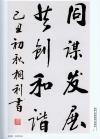 同谋发展
共创和谐
己丑初秋相利书